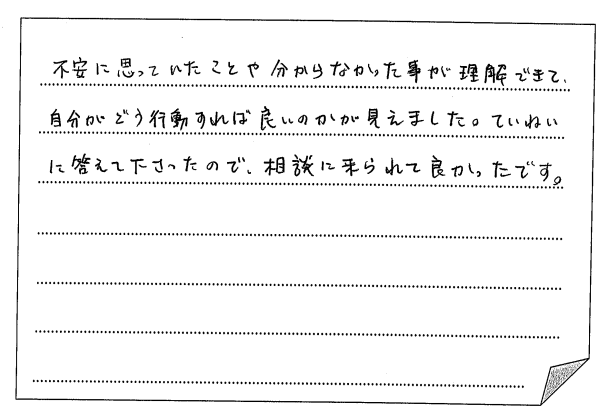 不安に思っていたことや分からなかった事が理解できて、
自分がどう行動すれば良いのかが見えました。ていねい
に答えて下さったので、相談に来られて良かったです。